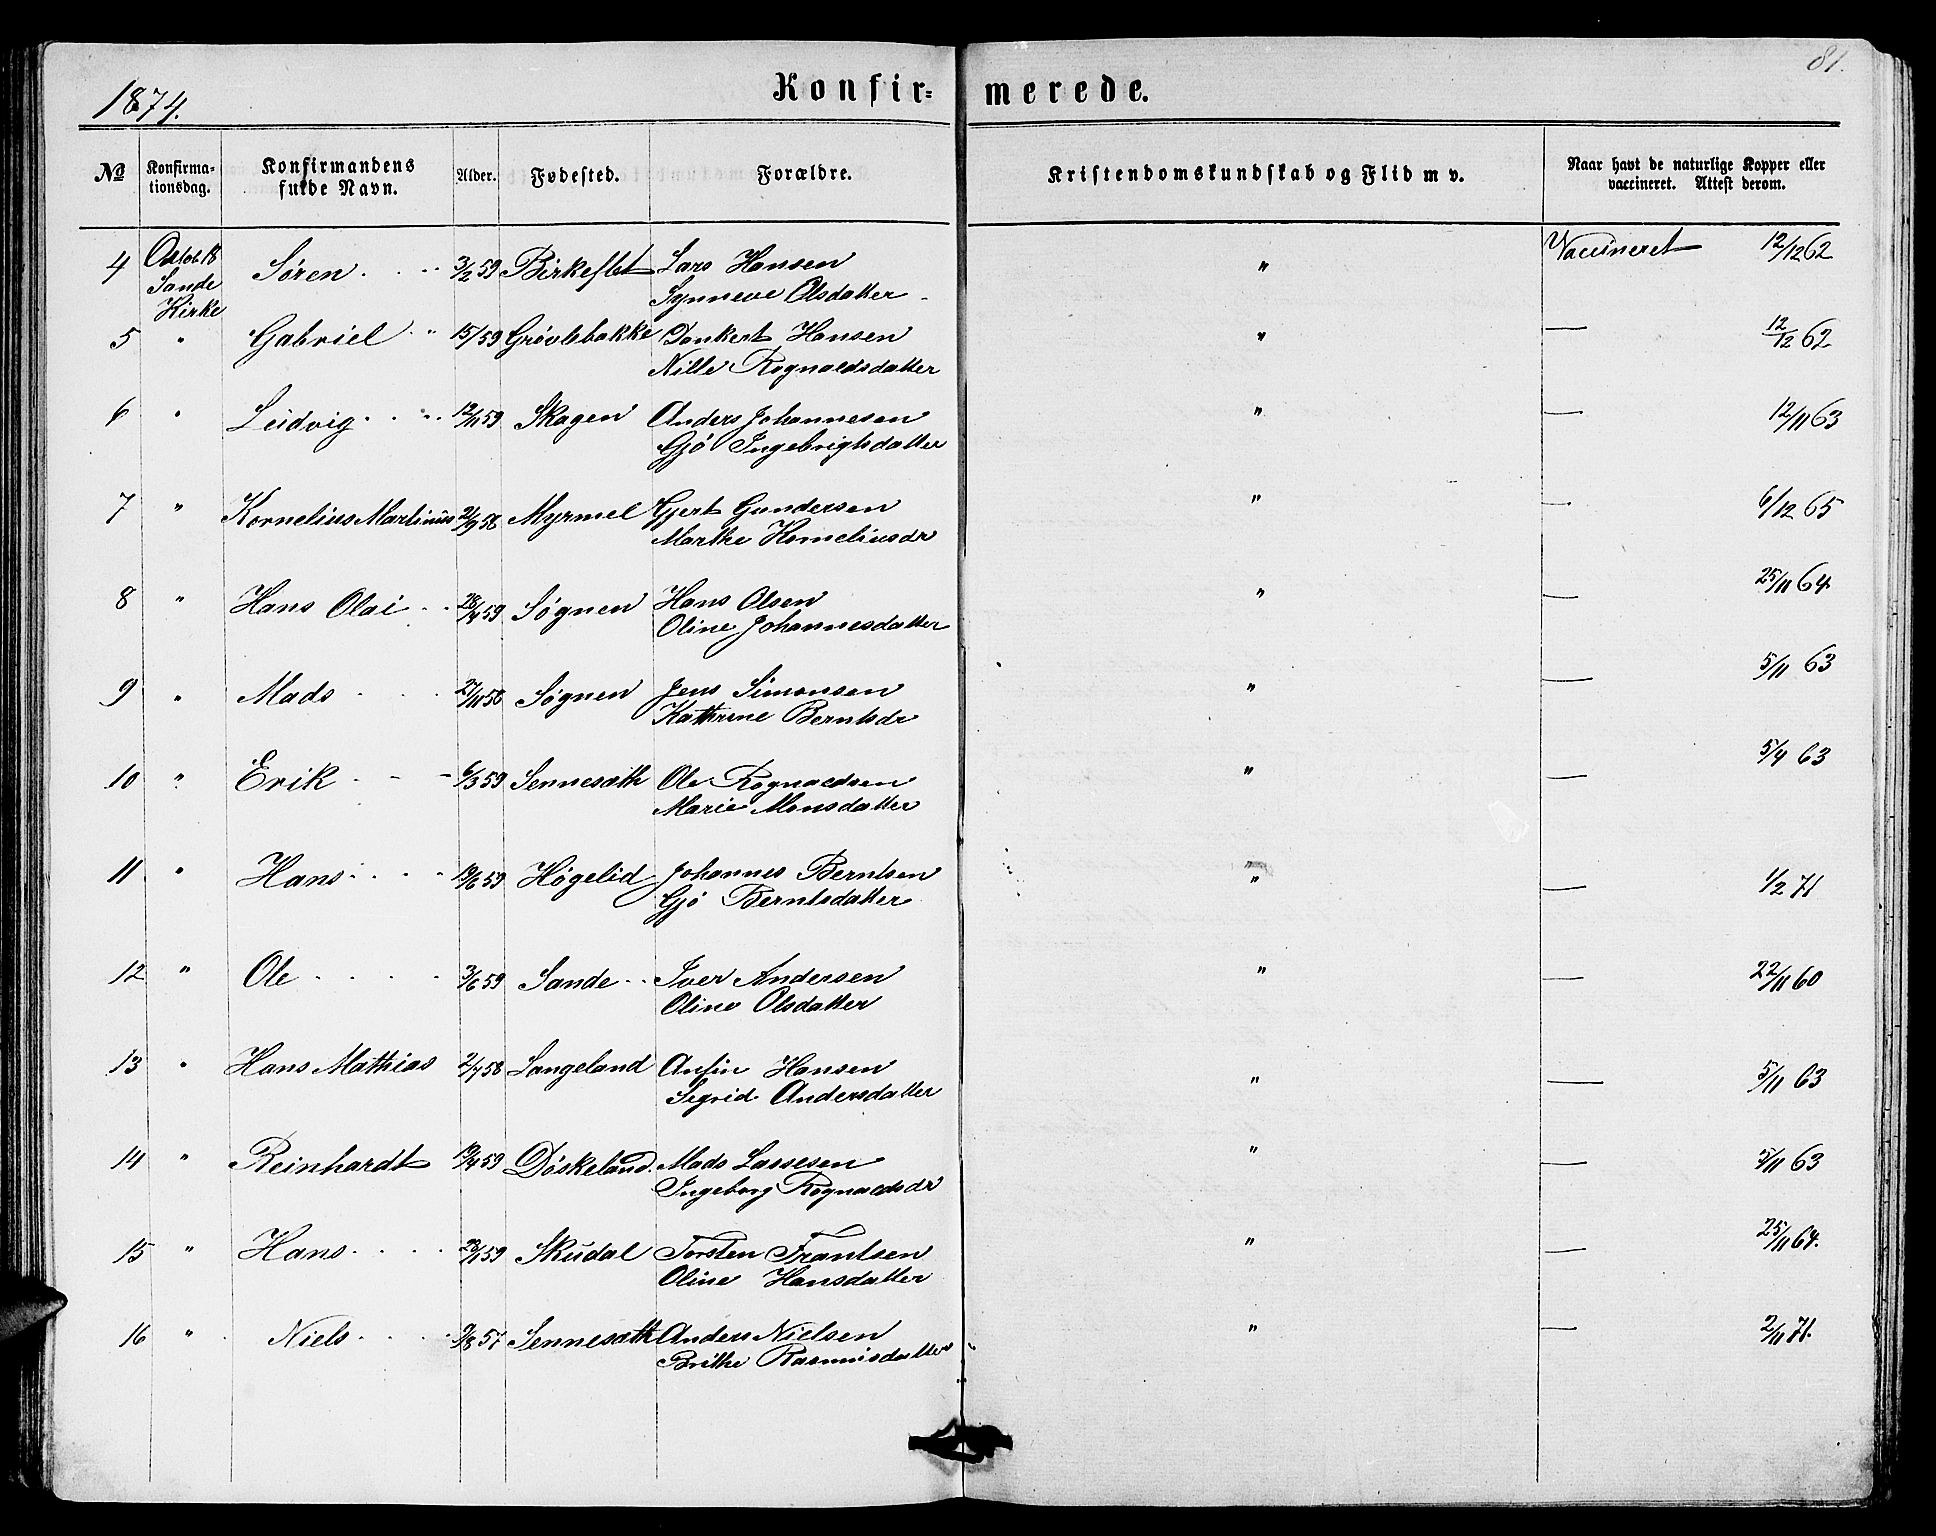 81.
1874.
Konfir-merede.
No Konfirmationsdag. Konfirmandens fulde Navn. Alder. Fødested. Forældre. Kristendomskundskab og Flid m v. Naar havt de naturlige Kopper eller vaccineret. Attest derom.
4 Octob. 18 Sande Kirke Søren 3/2 59 Birkeflot Lars Hansen " Vaccineret 12/12 62
Synneve Olsdatter
5 " Gabriel 15/ 59 Grøvlebakke Dankert Hansen " — 12/12 62
Nille Rognaldsdatter
6 " Ludvig 12/11 59 Skagen Anders Johannesen " — 12/11 63
Gjø Ingebrigtsdatter
7 " Kornelius Martinus 21/9 58 Myrmel Gjert Gundersen " — 6/12 65
Marthe Korneliusdr
8 " Hans Olai 28/4 59 Søgnen Hans Olsen " — 25/11 64
Oline Johannesdatter
9 " Mads 27/11 58 Søgnen Jens Simonsen " — 5/11 63
Kathrine Berntsdr
10 " Erik 6/3 59 Sennesæth Ole Rognaldsen " — 5/4 63
Marie Monsdatter
11 " Hans 19/6 59 Høgelid Johannes Berntsen " — 1/2 71
Gjø Berntsdatter
12 " Ole 3/6 59 Sande Iver Andersen " — 22/11 60
Oline Olsdatter
13 " Hans Mathias 2/7 58 Langeland Anfin Hansen " — 5/11 63
Sigrid Andersdatter
14 " Reinhardt 19/4 59 Døskeland Mads Lassesen " — 5/11 63
Ingeborg Rognaldsdr
15 " Hans 23/1 59 Skudal Torsten Frantsen " — 25/11 64.
Oline Hansdatter
16 " Niels 9/8 57 Sennesæth Anders Nielsen " — 2/11 71.
Brithe Rasmusdatter